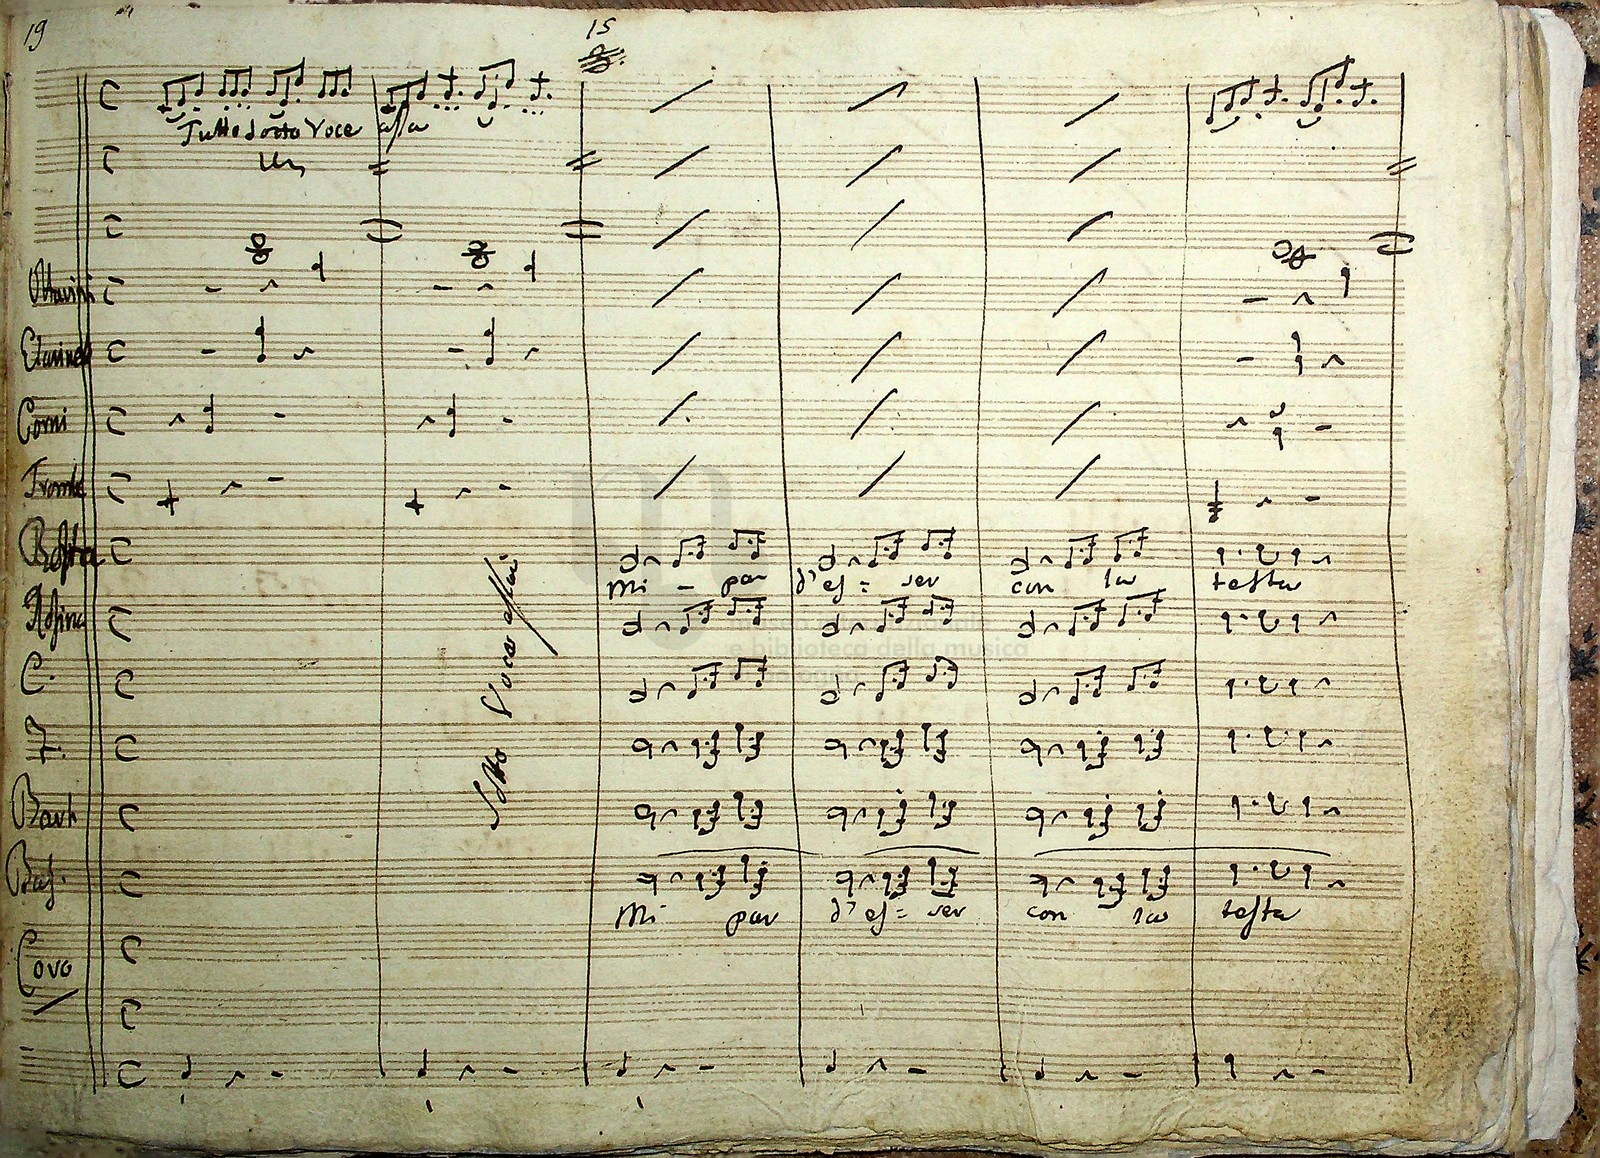 19
15
Tutto Sotto Voce assai
Ottavini
Clarinetti
Corni
Trombe
Berta
mi - par d'es = ser con la testa
Rosina
e biblioteca della musica
C.
F.
Sotto Voce assai
Bart.
Bas.
mi par d'es = ser con la testa
Coro